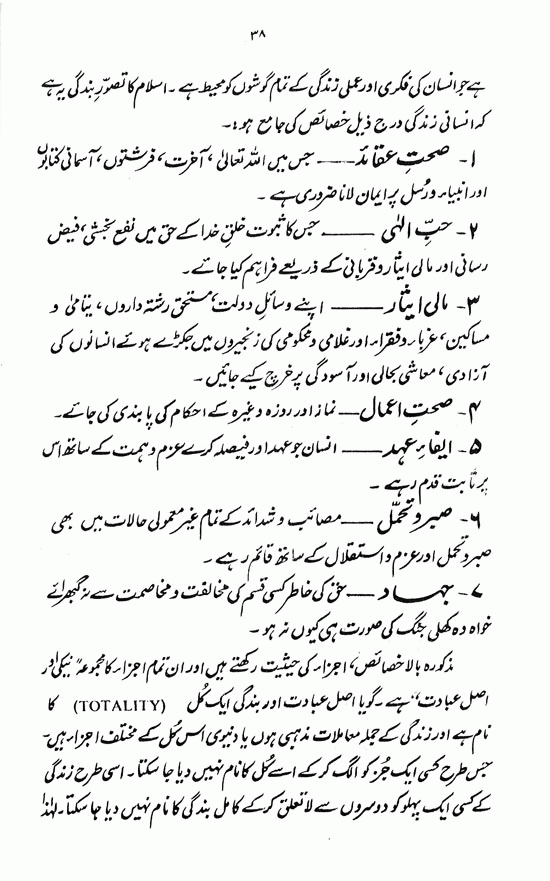 ۳۸
ہے جو انسان کی فکری اور عملی زندگی کے تمام گوشوں کو محیط ہے ۔ اسلام کا تصوّرِ بندگی یہ ہے
کہ انسانی زندگی درج ذیل خصائص کی جامع ہو :۔
۱۔ صحتِ عقائد —— جس میں اللہ تعالیٰ ، آخرت، فرشتوں، آسمانی کتابوں
اور انبیاء و رُسل پر ایمان لانا ضروری ہے ۔
۲۔ حبِّ الٰہی —— جس کا ثبوت خلقِ خدا کے حق میں نفع بخشی، فیض
رسانی اور مالی ایثار و قربانی کے ذریعے فراہم کیا جائے ۔
۳۔ مالی ایثار —— اپنے وسائلِ دولت، مستحق رشتہ داروں ، یتامیٰ و
مساکین، غرباء و فقراء اور غلامی و محکومی کی زنجیروں میں جکڑے ہوئے انسانوں کی
آزادی ، معاشی بحالی اور آسودگی پر خرچ کیے جائیں ۔
۴۔ صحتِ اعمال —— نماز اور روزہ وغیرہ کے احکام کی پابندی کی جائے ۔
۵۔ ایفاءِ عہد —— انسان جو عہد اور فیصلہ کرے عزم و ہمت کے ساتھ اس
پر ثابت قدم رہے ۔
۶۔ صبر و تحمّل —— مصائب و شدائد کے تمام غیر معمولی حالات میں بھی
صبر و تحمل اور عزم و استقلال کے ساتھ قائم رہے ۔
۷۔ جہاد —— حق کی خاطر کسی قسم کی مخالفت و مخاصمت سے نہ گھبرائے
خواہ وہ کھلی جنگ کی صورت ہی کیوں نہ ہو ۔
مذکورہ بالا خصائص، اجزاء کی حیثیت رکھتے ہیں اور ان تمام اجزاء کا مجموعہ ”نیکی اور
اصل عبادت“ ہے ۔ گویا اصل عبادت اور بندگی ایک کُل (TOTALITY) کا
نام ہے اور زندگی کے جملہ معاملات مذہبی ہوں یا دنیوی اس کُل کے مختلف اجزاء ہیں۔
جس طرح کسی ایک جُز کو الگ کر کے اسے کُل کا نام نہیں دیا جا سکتا ۔ اسی طرح زندگی
کے کسی ایک پہلو کو دوسروں سے لاتعلق کر کے کامل بندگی کا نام نہیں دیا جا سکتا ۔ لہٰذا